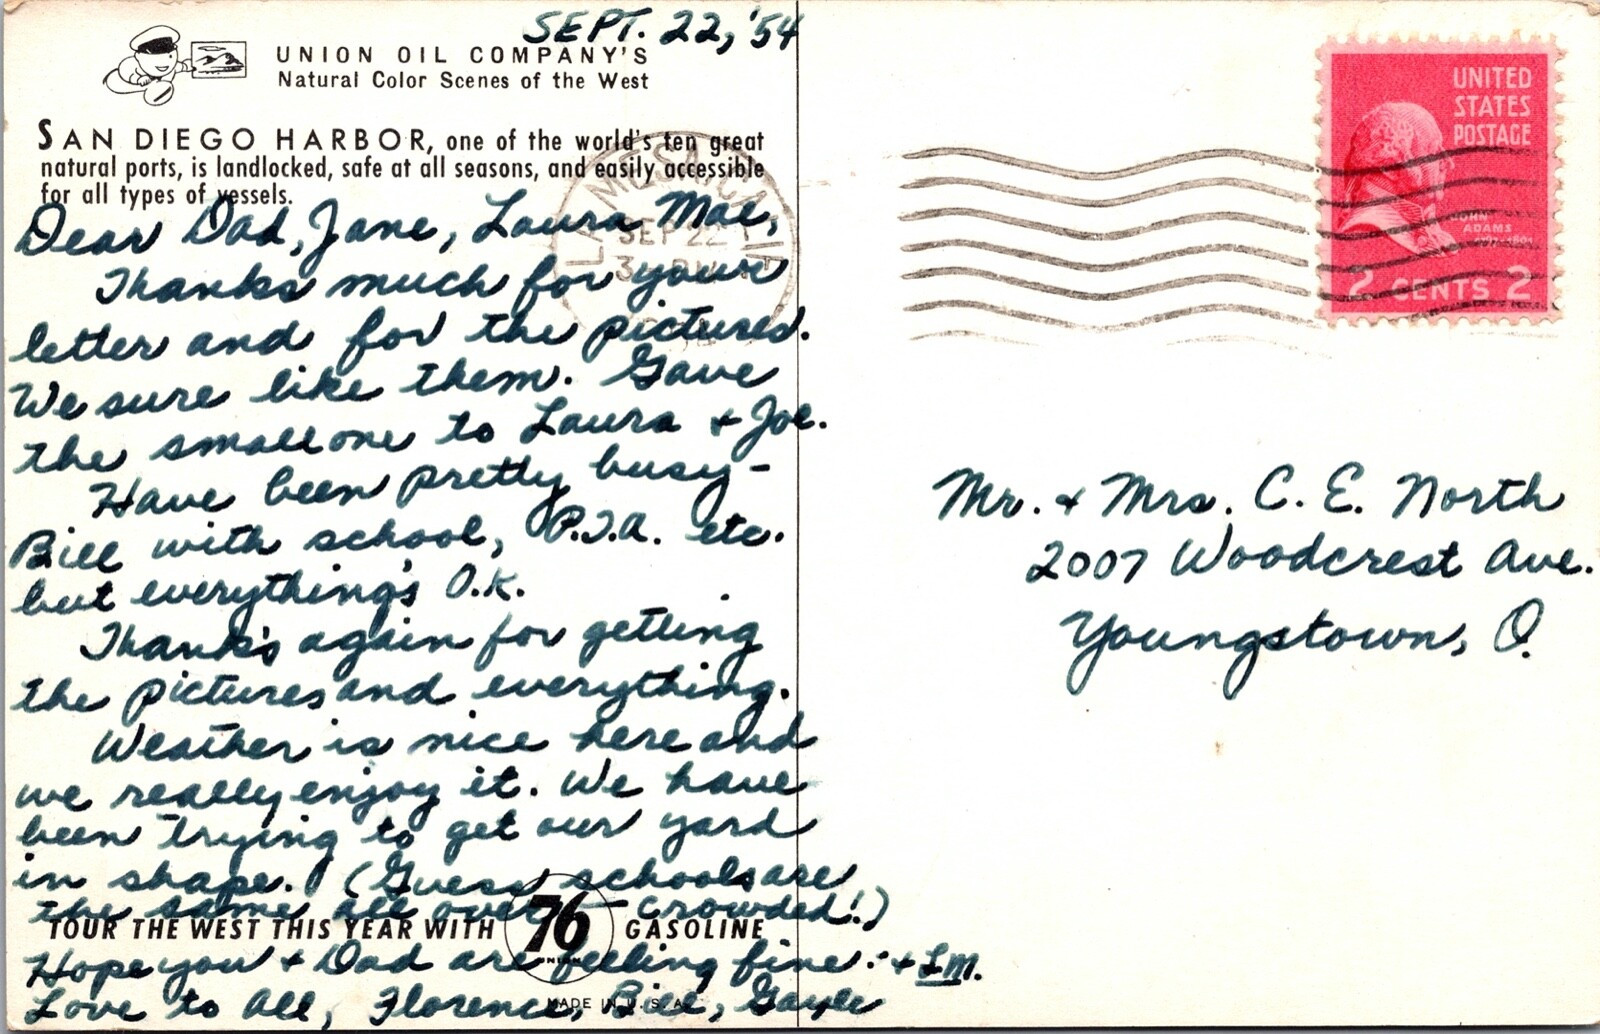 SEPT. 22, '54
UNION OIL COMPANY'S
Natural Color Scenes of the West
SAN DIEGO HARBOR, one of the world's ten great
natural ports, is landlocked, safe at all seasons, and easily accessible
for all types of vessels.
Dear Dad, Jane, Laura Mae,
Thanks much for your
letter and for the pictures.
We sure like them. Gave
the small one to Laura + Joe.
Have been pretty busy -
Bill with school, P.T.A. etc.
but everything's O.K.
Thanks again for getting
the pictures and everything.
Weather is nice here and
we really enjoy it. We have
been trying to get our yard
in shape. (Guess schools are
the same all over - crowded!)
TOUR THE WEST THIS YEAR WITH 76 GASOLINE
UNION
Hope you + Dad are feeling fine. + L.M.
Love to all, Florence, Bill, Gayle
MADE IN U.S.A.
LA MESA, CALIF.
SEP 22
3 PM
UNITED
STATES
POSTAGE
JOHN
ADAMS
1797-1801
2 CENTS 2
Mr. + Mrs. C. E. North
2007 Woodcrest Ave.
Youngstown, O.